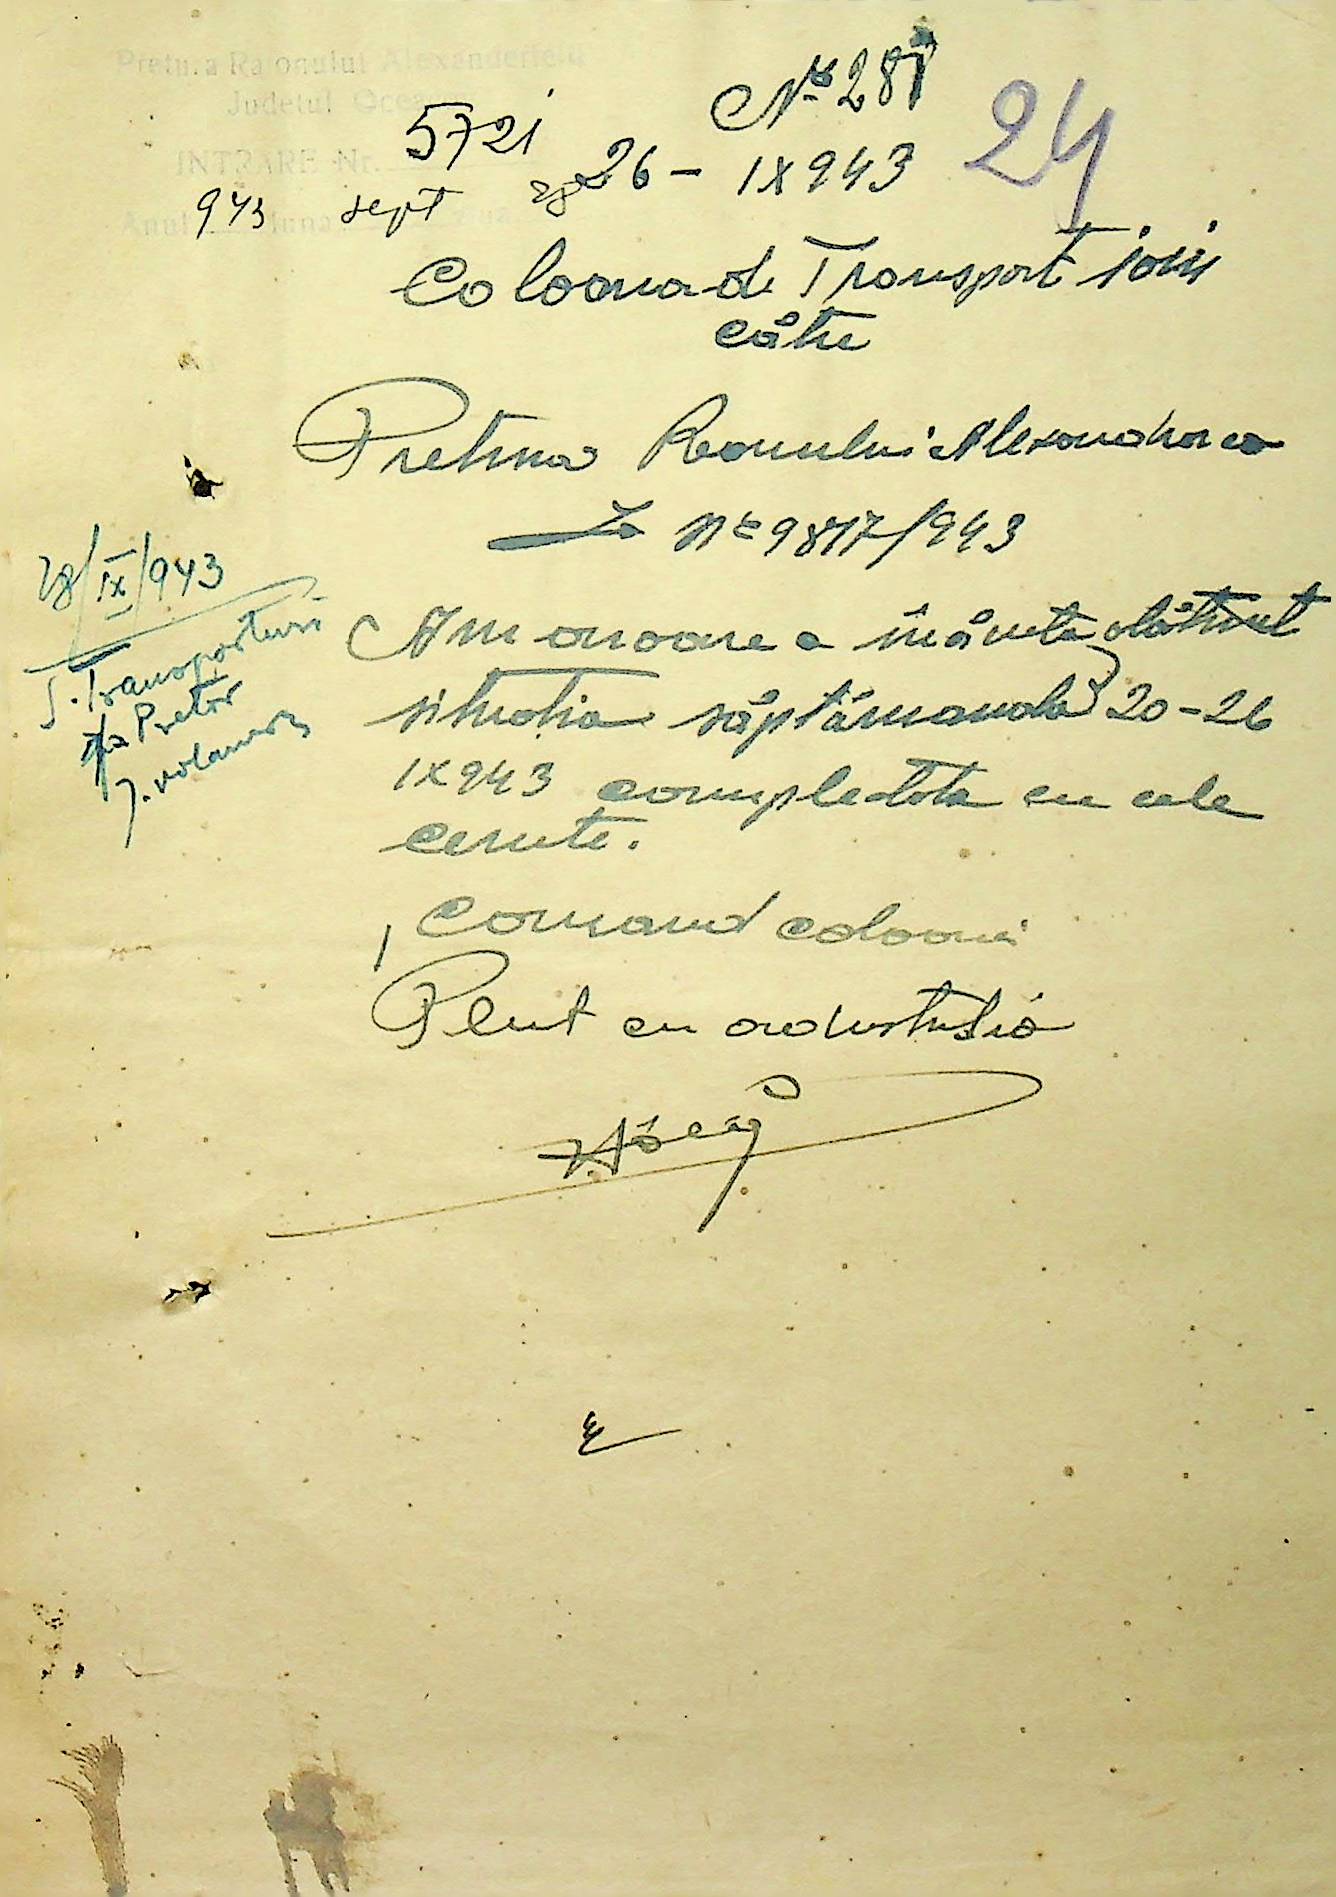 Pretura Raionului Alexanderfeld
Judetul Oceacov
INTRARE Nr. 5721
Anul 943 luna sept ziua 28
Nº 287
24
26 - IX 943
Coloana de Transport
către
Pretura Raionului Alexandrovca
La Nº 9817/943
Am onoare a înainta alăturat
situatia săptămanala 20-26
IX 943 complectata cu cele
cerute.
Comand coloanei
Plut
28/IX/943
S. Transporturi
Pretor